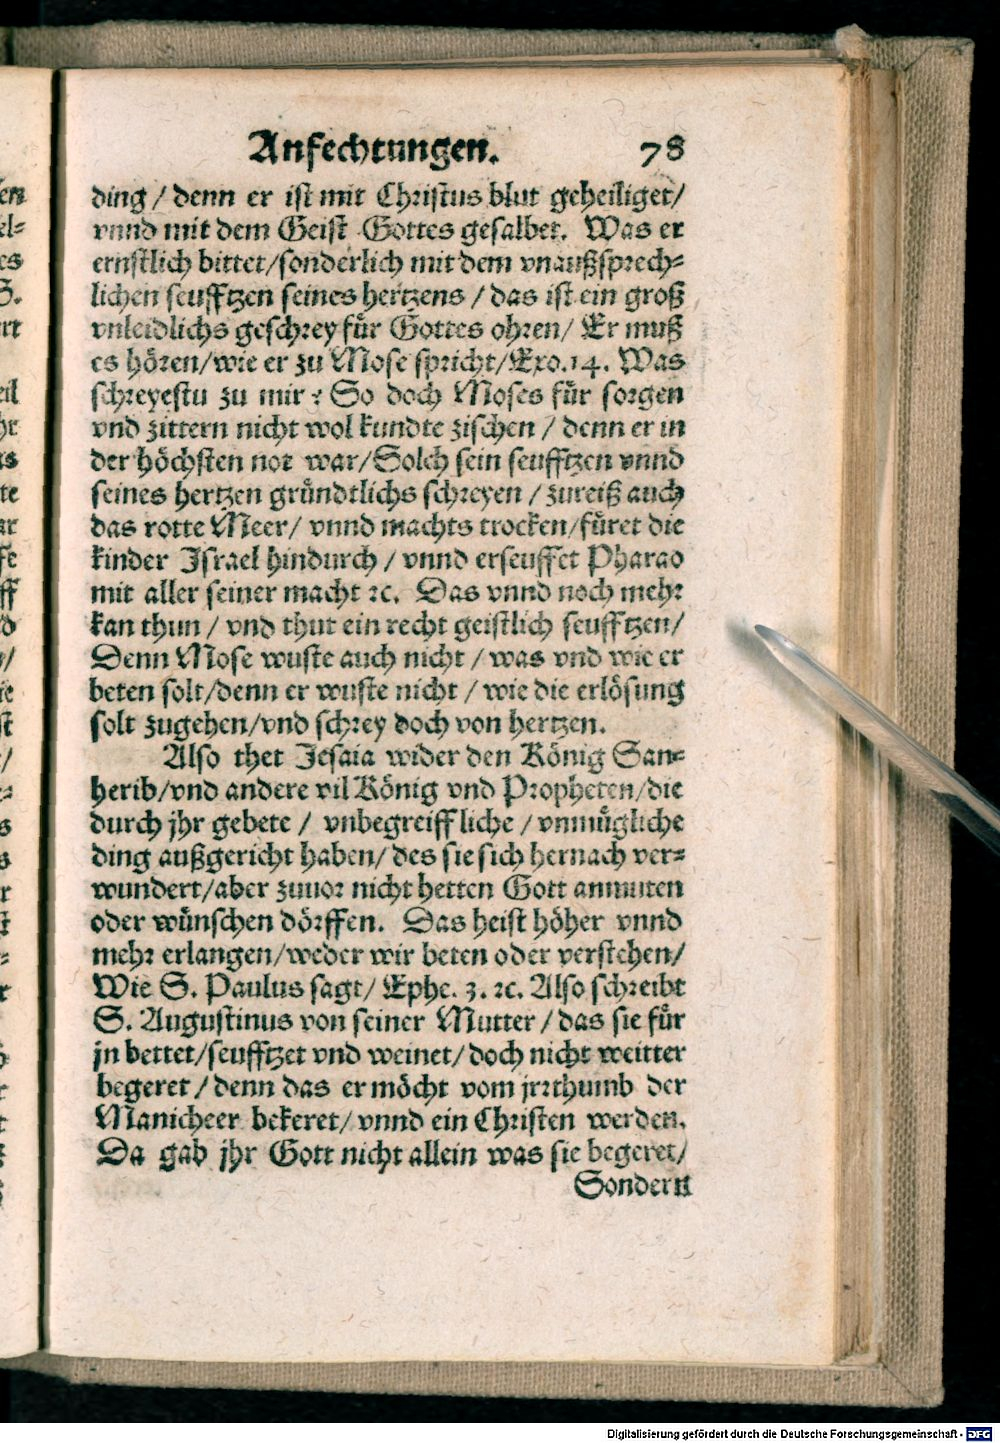 Anfechtungen. 78
ding / denn er ist mit Christus blut geheiliget/
vnnd mit dem Geist Gottes gesalbet. Was er
ernstlich bittet/sonderlich mit dem vnaußsprech-
lichen seufftzen seines hertzens / das ist ein groß
vnleidlichs geschrey für Gottes ohren/ Er muß
es hören/wie er zu Mose spricht/Exo.14. Was
schreyestu zu mir? So doch Moses für sorgen
vnd zittern nicht wol kundte zischen / denn er in
der höchsten not war/Solch sein seufftzen vnnd
seines hertzen gründtlichs schreyen / zureiß auch
das rotte Meer/ vnnd machts trocken/füret die
kinder Israel hindurch / vnnd erseuffet Pharao
mit aller seiner macht ꝛc. Das vnnd noch mehr
kan thun / vnd thut ein recht geistlich seufftzen/
Denn Mose wuste auch nicht / was vnd wie er
beten solt/denn er wuste nicht / wie die erlösung
solt zugehen/vnd schrey doch von hertzen.
Also thet Jesaia wider den König San-
herib/vnd andere vil König vnd Propheten/die
durch jhr gebete / vnbegreiffliche / vnmügliche
ding außgericht haben/ des sie sich hernach ver-
wundert/aber zuuor nicht hetten Gott anmuten
oder wünschen dörffen. Das heist höher vnnd
mehr erlangen/weder wir beten oder verstehen/
Wie S. Paulus sagt/ Ephe. 3. ꝛc. Also schreibt
S. Augustinus von seiner Mutter / das sie für
jn bettet/seufftzet vnd weinet/ doch nicht weitter
begeret / denn das er möcht vom jrrthumb der
Manicheer bekeret/ vnnd ein Christen werden.
Da gab jhr Gott nicht allein was sie begeret/
Sondern
Digitalisierung gefördert durch die Deutsche Forschungsgemeinschaft - DFG